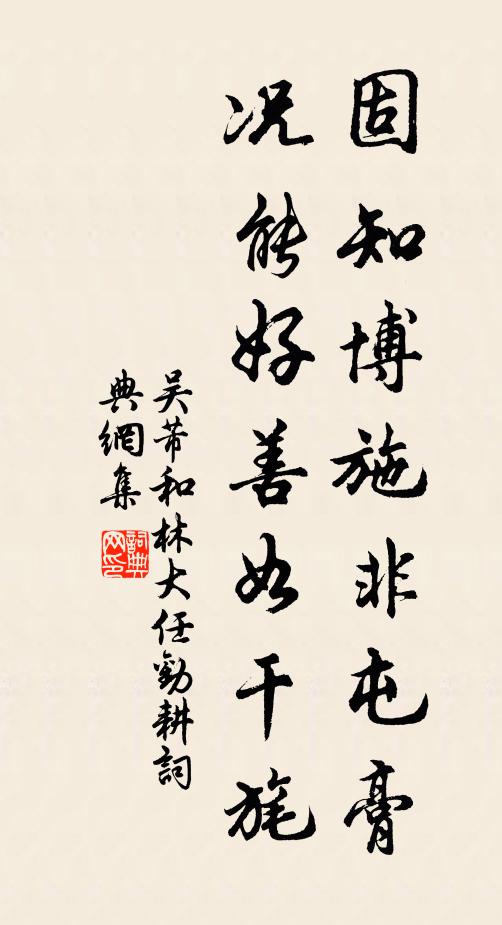 固知博施非屯膏
况能好善如干旄
吴芾和林大任勸耕詞
典網集
詞典网印